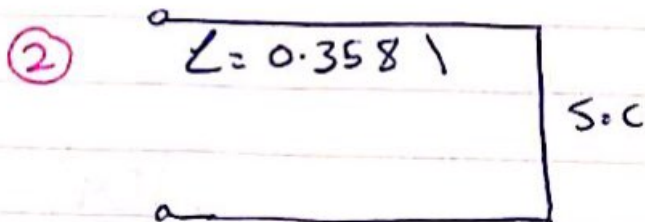 ②
L = 0.358 \
S.C